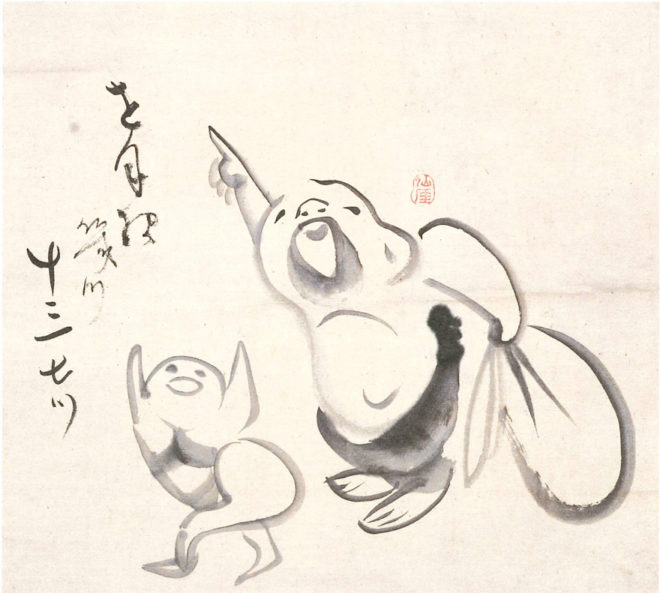 を月様
幾つ
十三七つ
仙厓